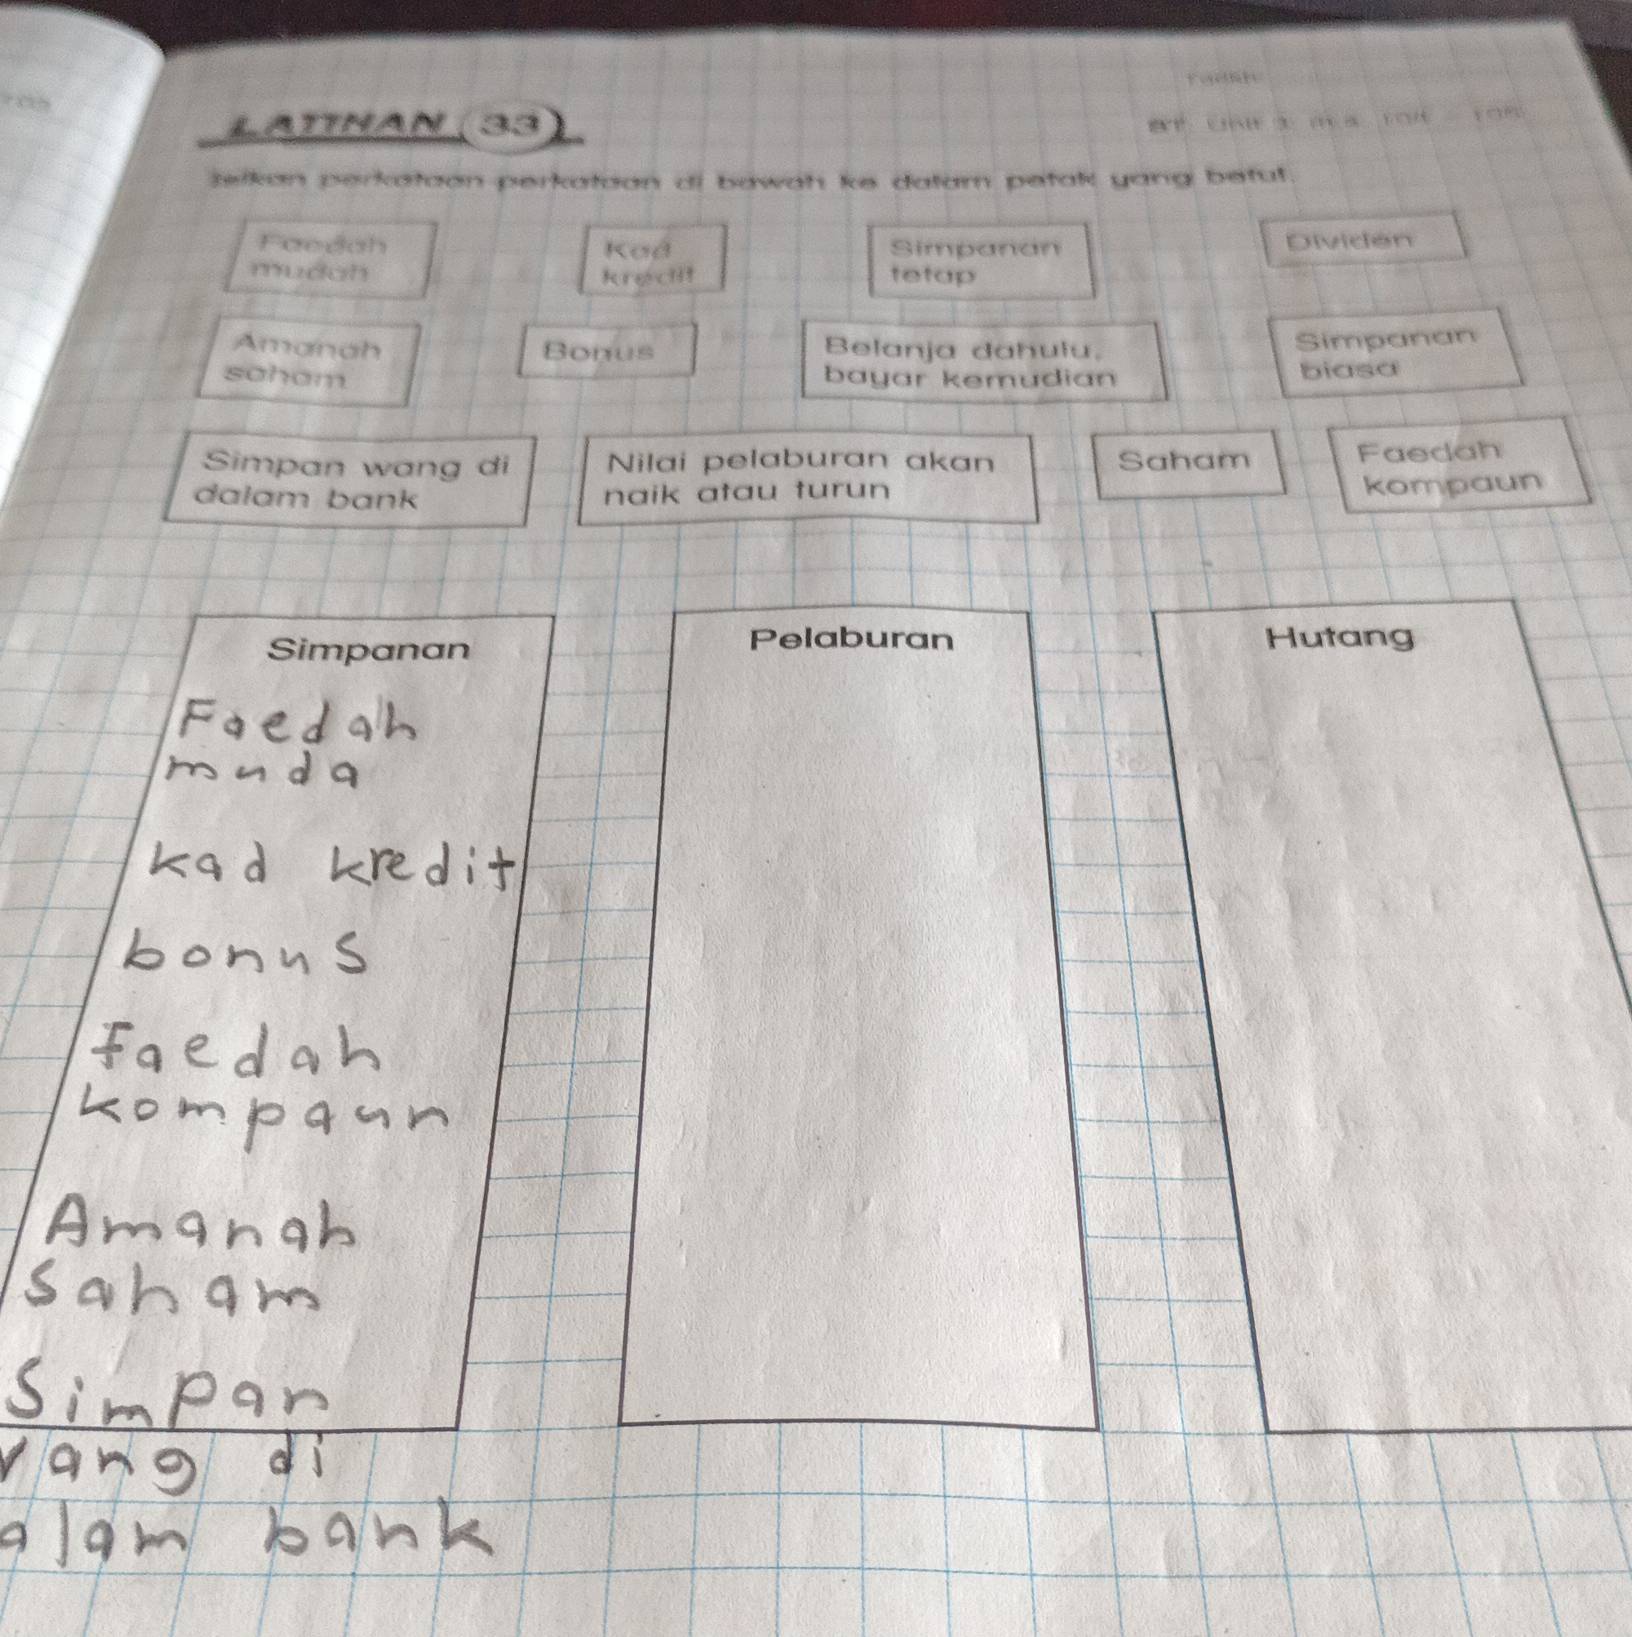 LATIHAN 33
perkataan-perkataan di bawah ke dalam petak yang betul.
Faedah
mudah
Kad
kredit
Simpanan
tetap
Dividen
Amanah
saham
Bonus
Belanja dahulu,
bayar kemudian
Simpanan
biasa
Simpan wang di
dalam bank
Nilai pelaburan akan
naik atau turun
Saham
Faedah
kompaun
Simpanan
Pelaburan
Hutang
Faedah
muda
kad kredit
bonus
Faedah
kompaun
Amanah
saham
Simpan
di
bank